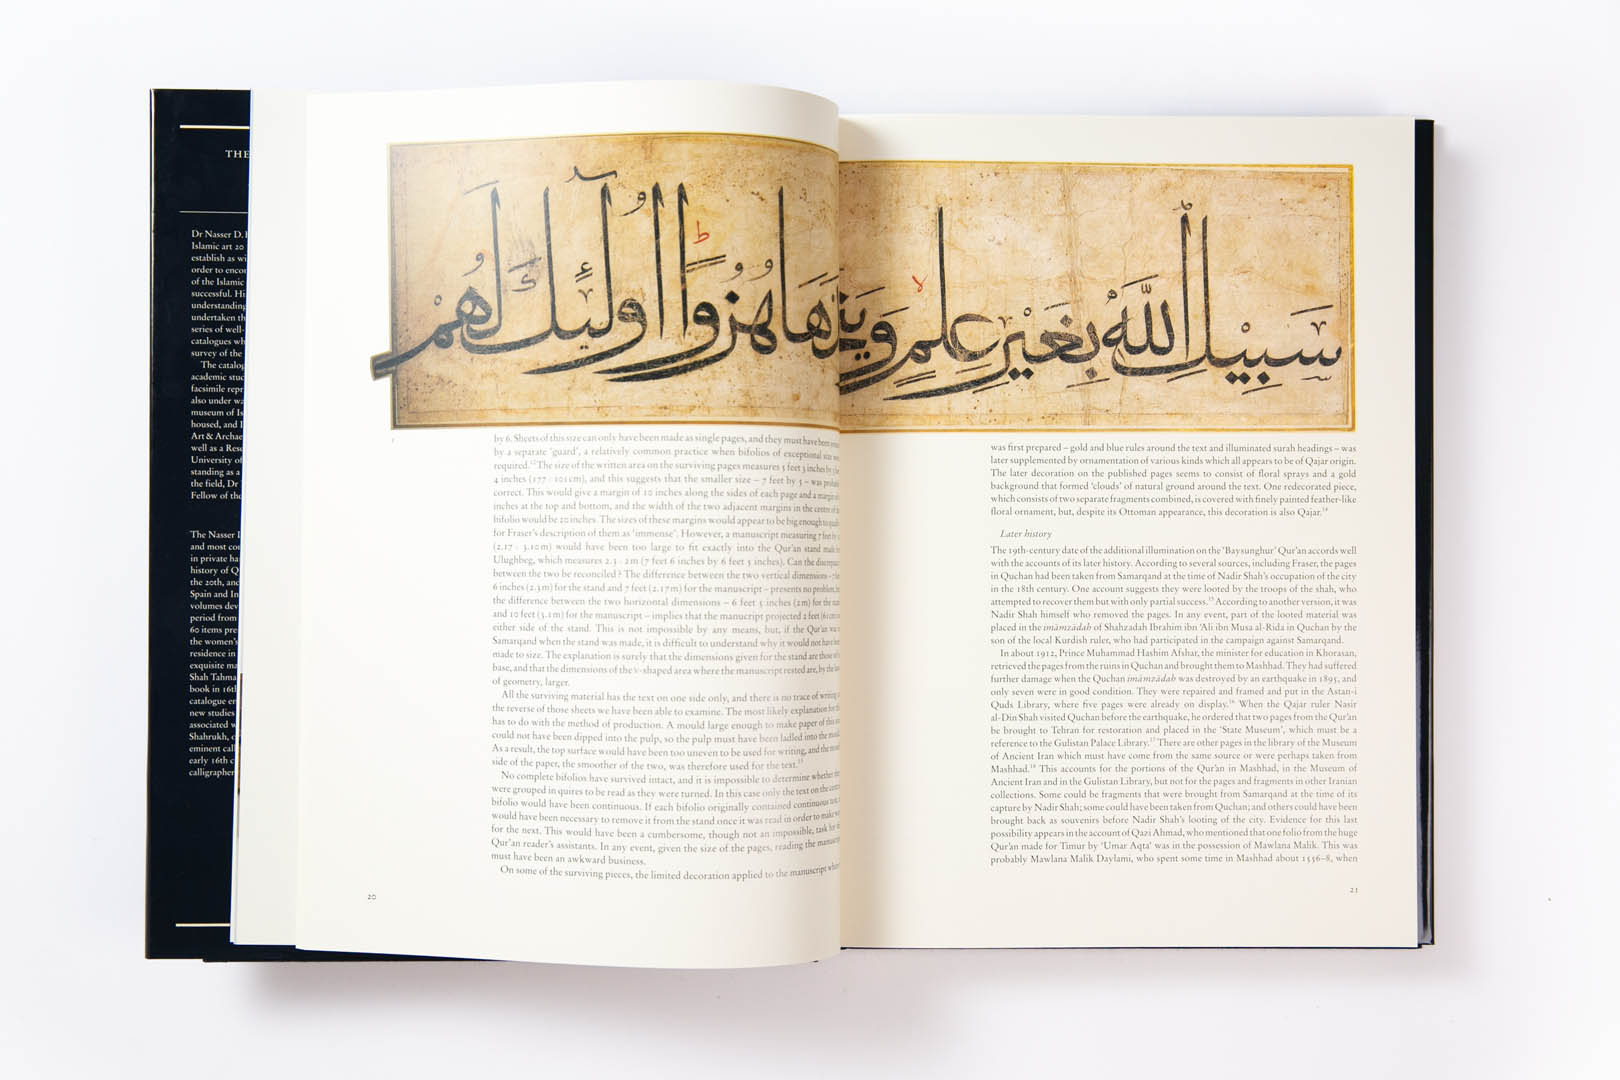 THE
Dr Nasser D.
Islamic art 20
establish as
order to
of the Islamic
successful.
understanding
undertaken
series of well-
catalogues
survey of the
The
academic
facsimile
also under
museum of
housed, and
Art & Archae
well as a
University of
standing as a
the field, Dr
Fellow of the
The Nasser
and most
in private
history of
the 20th, and
Spain and
volumes
period from
60 items
the women's
residence in
exquisite
Shah
book in 16th
catalogue
new studies
associated
Shahrukh,
eminent
early 16th
calligrapher
سَبِيلِ اللَّهِ بِغَيْرِ عِلْمٍ وَيَتَّخِذَهَا هُزُوًا أُولَٰئِكَ لَهُمْ
1
by 6. Sheets of this size can only have been made as single pages, and they must have been
by a separate 'guard', a relatively common practice when bifolios of exceptional size was
required.12 The size of the written area on the surviving pages measures 5 feet 5 inches by 3 feet
4 inches (177 · 101 cm), and this suggests that the smaller size – 7 feet by 5 – was probably
correct. This would give a margin of 10 inches along the sides of each page and a margin of
inches at the top and bottom, and the width of the two adjacent margins in the centre of a
bifolio would be 20 inches. The sizes of these margins would appear to be big enough to qualify
for Fraser's description of them as 'immense'. However, a manuscript measuring 7 feet by
(2.17 · 3.10 m) would have been too large to fit exactly into the Qur'an stand made
Ulughbeg, which measures 2.3 · 2 m (7 feet 6 inches by 6 feet 5 inches). Can the discrepancy
between the two be reconciled? The difference between the two vertical dimensions – 7 feet
6 inches (2.3 m) for the stand and 7 feet (2.17 m) for the manuscript – presents no problem, but
the difference between the two horizontal dimensions – 6 feet 5 inches (2m) for the stand
and 10 feet (3.1 m) for the manuscript – implies that the manucript projected 2 feet (61 cm) on
either side of the stand. This is not impossible by any means, but, if the Qur'an was in
Samarqand when the stand was made, it is difficult to understand why it would not have been
made to size. The explanation is surely that the dimensions given for the stand are those of its
base, and that the dimensions of the v-shaped area where the manuscript rested are, by the laws
of geometry, larger.
All the surviving material has the text on one side only, and there is no trace of writing on
the reverse of those sheets we have been able to examine. The most likely explanation for this
has to do with the method of production. A mould large enough to make paper of this size
could not have been dipped into the pulp, so the pulp must have been ladled into the mould.
As a result, the top surface would have been too uneven to be used for writing, and the mould
side of the paper, the smoother of the two, was therefore used for the text.13
No complete bifolios have survived intact, and it is impossible to determine whether they
were grouped in quires to be read as they were turned. In this case only the text on the centre
bifolio would have been continuous. If each bifolio originally contained continuous text, it
would have been necessary to remove it from the stand once it was read in order to make way
for the next. This would have been a cumbersome, though not an impossible, task for the
Qur'an reader's assistants. In any event, given the size of the pages, reading the manuscript
must have been an awkward business.
On some of the surviving pieces, the limited decoration applied to the manuscript when
20
was first prepared – gold and blue rules around the text and illuminated surah headings – was
later supplemented by ornamentation of various kinds which all appears to be of Qajar origin.
The later decoration on the published pages seems to consist of floral sprays and a gold
background that formed 'clouds' of natural ground around the text. One redecorated piece,
which consists of two separate fragments combined, is covered with finely painted feather-like
floral ornament, but, despite its Ottoman appearance, this decoration is also Qajar.14
Later history
The 19th-century date of the additional illumination on the 'Baysunghur' Qur'an accords well
with the accounts of its later history. According to several sources, including Fraser, the pages
in Quchan had been taken from Samarqand at the time of Nadir Shah's occupation of the city
in the 18th century. One account suggests they were looted by the troops of the shah, who
attempted to recover them but with only partial success.15 According to another version, it was
Nadir Shah himself who removed the pages. In any event, part of the looted material was
placed in the imāmzādah of Shahzadah Ibrahim ibn 'Ali ibn Musa al-Rida in Quchan by the
son of the local Kurdish ruler, who had participated in the campaign against Samarqand.
In about 1912, Prince Muhammad Hashim Afshar, the minister for education in Khorasan,
retrieved the pages from the ruins in Quchan and brought them to Mashhad. They had suffered
further damage when the Quchan imāmzādah was destroyed by an earthquake in 1895, and
only seven were in good condition. They were repaired and framed and put in the Astan-i
Quds Library, where five pages were already on display.16 When the Qajar ruler Nasir
al-Din Shah visited Quchan before the earthquake, he ordered that two pages from the Qur'an
be brought to Tehran for restoration and placed in the 'State Museum', which must be a
reference to the Gulistan Palace Library.17 There are other pages in the library of the Museum
of Ancient Iran which must have come from the same source or were perhaps taken from
Mashhad.18 This accounts for the portions of the Qur'an in Mashhad, in the Museum of
Ancient Iran and in the Gulistan Library, but not for the pages and fragments in other Iranian
collections. Some could be fragments that were brought from Samarqand at the time of its
capture by Nadir Shah; some could have been taken from Quchan; and others could have been
brought back as souvenirs before Nadir Shah's looting of the city. Evidence for this last
possibility appears in the account of Qazi Ahmad, who mentioned that one folio from the huge
Qur'an made for Timur by 'Umar Aqta' was in the possession of Mawlana Malik. This was
probably Mawlana Malik Daylami, who spent some time in Mashhad about 1556–8, when
21